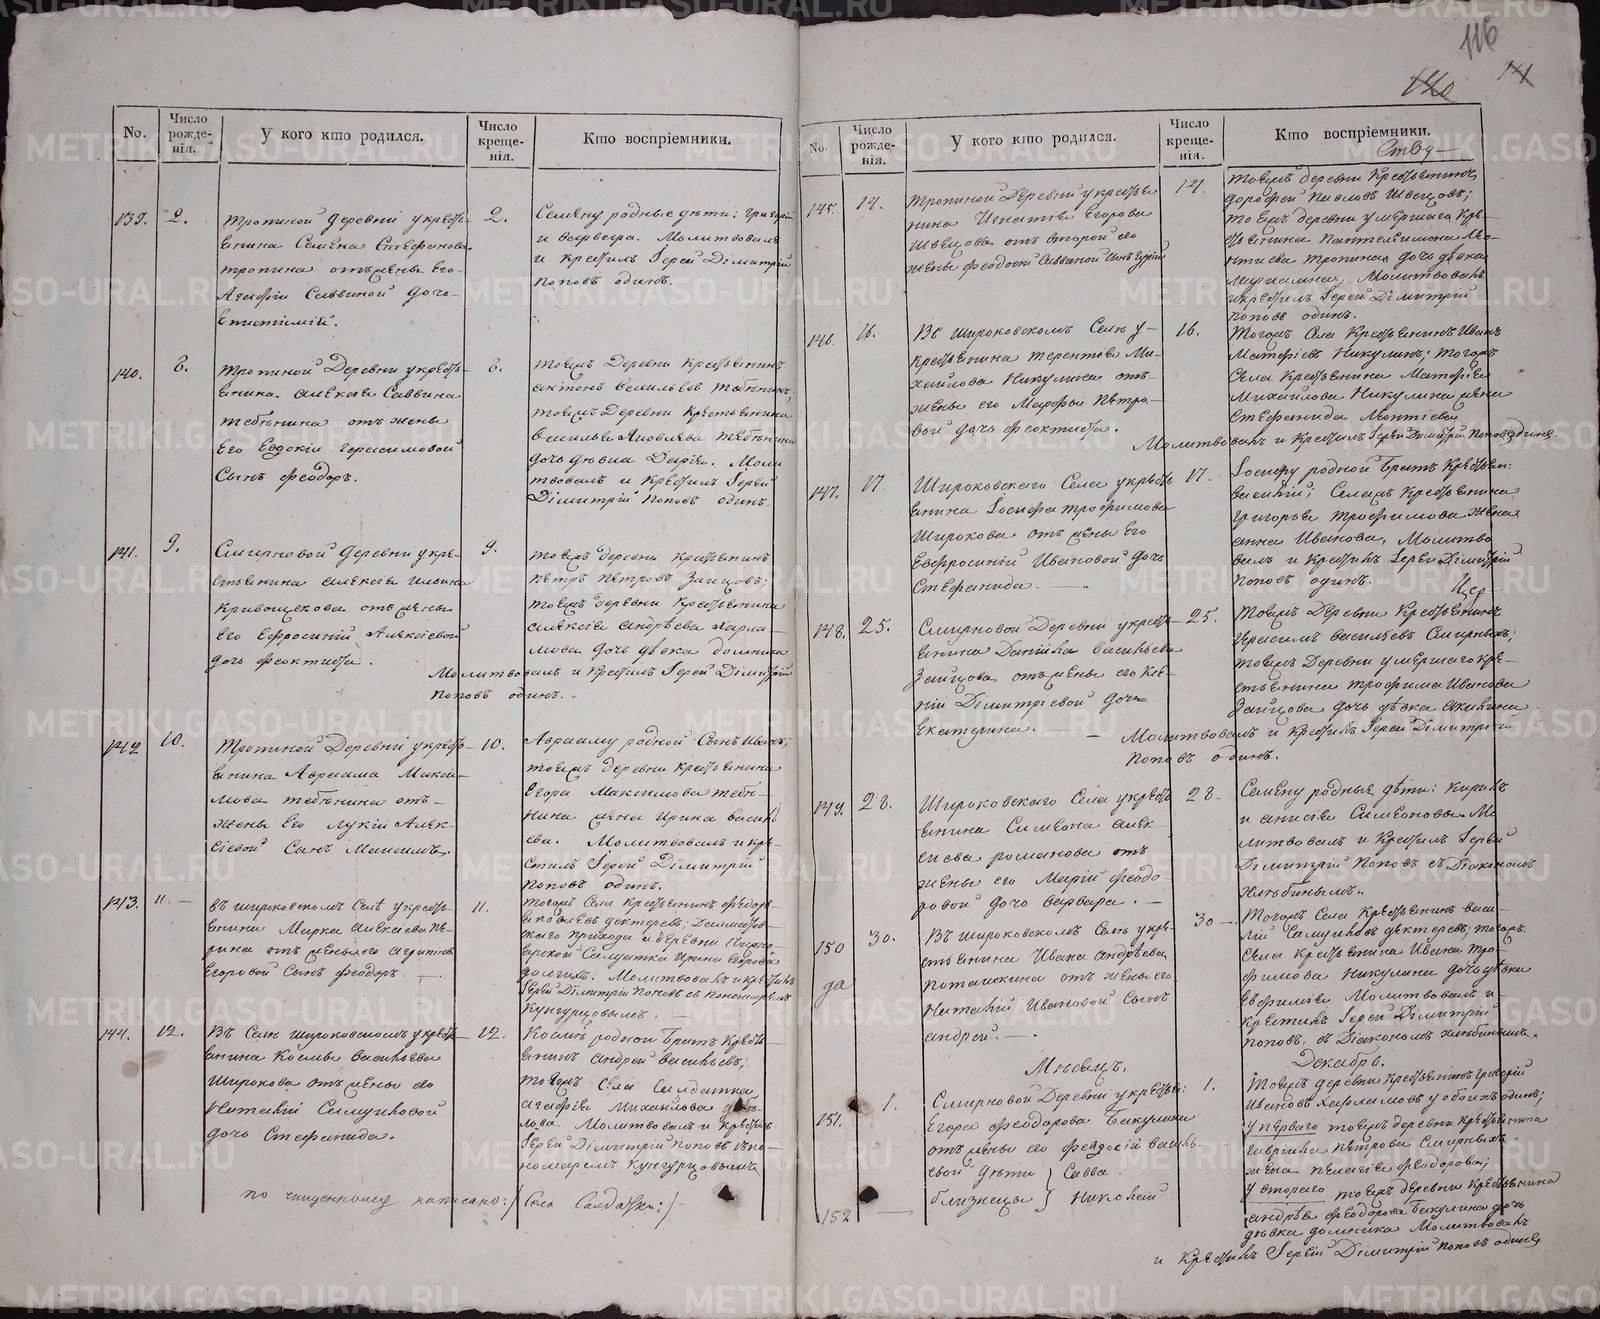 116
140
141
No.
Число рожде-нія.
У кого кто родился.
Число креще-нія.
Кто воспріемники.
139.
2.
Тропиной деревни у кресть-
янина Семена Стефанова
Тропина отъ жены его
Агафіи Саввиной дочь
Епистимія.
2.
Семену родные дѣти: Григорій
и Варвара. Молитвовалъ
и крестилъ Іерей Димитрій
Поповъ одинъ.
140.
8.
Тропиной деревни у кресть-
янина Алексія Саввина
Тебѣнина отъ жены
его Евдокіи Герасимовой
сынъ Феодоръ.
8.
Тоежъ деревни крестьянинъ
Васильевъ Тебѣнинъ;
тоежъ деревни крестьянина
Василья Яковлева Тебѣнина
дочь дѣвка Дарія. Моли-
твовалъ и крестилъ Іерей
Димитрій Поповъ одинъ.
141.
9.
Смирновой деревни у кре-
стьянина Алексія Ильина
Кривощекова отъ жены
его Ефросиніи Алексіевой
дочь Феоктиста.
9.
тоежъ деревни крестьянинъ
Петръ Петровъ Зайцовъ;
тоежъ деревни крестьянина
Алексія Андрѣева Харла-
мова дочь дѣвка Домника
Молитвовалъ и крестилъ Іерей Димитрій
Поповъ одинъ.
142
10.
Тропиной деревни у кресть-
янина Авраама Макси-
мова Тебѣнина отъ
жены его Лукіи Алек-
сіевой сынъ Максимъ.
10.
Аврааму родной сынъ Иванъ;
тоежъ деревни крестьянина
Егора Максимова Тебѣ-
нина жена Ирина Василь-
ева. Молитвовалъ и кре-
стилъ Іерей Димитрій
Поповъ одинъ.
143.
11.
Въ Широковскомъ селѣ у кресть-
янина Марка Алексіева
отъ жены его
Егоровой сынъ Феодоръ.
11.
Тогожъ села крестьянинъ Феодоръ
Яковлевъ Дектеревъ;
прихода деревни
Солдатка Ирина Егорова
Молитвовалъ и крестилъ
Іерей Димитрій Поповъ съ пономаремъ
Кунгурцовымъ.
144.
12.
Въ селѣ Широковскомъ у кресть-
янина Космы Васильева
Широкова отъ жены его
Наталіи Самуиловой
дочь Стефанида.
12.
Космѣ родной братъ кресть-
янинъ Андрей Васильевъ;
тогожъ села солдатка
Агафія Михайлова
Молитвовалъ и крестилъ
Іерей Димитрій Поповъ съ по-
номаремъ Кунгурцовымъ
по чищенному написано: / Села Солдатка: /
No.
Число рожде-нія.
У кого кто родился.
Число креще-нія.
Кто воспріемники.
145.
14.
Тропиной деревни у кресть-
нина Игнатія Егорова
Швецова отъ второй его
жены Феодосіи Саввиной сынъ
14.
тоежъ деревни крестьянинъ
Дорофей Павловъ Швецовъ;
тоежъ деревни умершаго кре-
стьянина Пантелеимона
Тропина дочь дѣвка
Молитвовалъ
и крестилъ Іерей Димитрій
Поповъ одинъ.
146.
16.
Въ Широковскомъ селѣ у
крестьянина Терентія Ми-
хайлова Никулина отъ
жены его Марфы Петро-
вой дочь Феоктиста.
16.
Тогожъ села крестьянинъ Иванъ
Матфіевъ Никулинъ; тогожъ
села крестьянина Матфія
Михайлова Никулина жена
Стефанида
Молитвовалъ и крестилъ Іерей Димитрій Поповъ одинъ.
147.
17.
Широковскаго села у кресть-
янина Іосифа Трофимова
Широкова отъ жены его
Евфросиніи Ивановой дочь
Стефанида.
17.
Іосифу родной братъ крестьян:
Василій; села крестьянина
Григорья Трофимова жена
Анна Иванова. Молитво-
валъ и крестилъ Іерей Димитрій
Поповъ одинъ.
148.
25.
Смирновой деревни у кресть-
янина Даніила Васильева
Зайцова отъ жены его Ксе-
ніи Димитріевой дочь
Екатерина.
25.
тоежъ деревни крестьянинъ
Герасимъ Васильевъ Смирныхъ;
тоежъ деревни умершаго кре-
стьянина Трофима Иванова
Зайцова дочь дѣвка Акилина
Молитвовалъ и крестилъ Іерей Димитрій
Поповъ одинъ.
149.
28.
Широковскаго села у кресть-
янина Симеона Алек-
сіева Романова отъ
жены его Маріи Феодо-
ровой дочь Варвара.
28
Семену родныя дѣти: Кирилъ
и Анисія Симеоновы. Мо-
литвовалъ и крестилъ Іерей
Димитрій Поповъ съ Діакономъ
Хлѣбинымъ.
150
да
30.
Въ Широковскомъ селѣ у кре-
стьянина Ивана Андрѣева
Поташкина отъ жены его
Наталіи Ивановой сынъ
Андрей.
30
Тогожъ села крестьянинъ Васи-
лій Самуиловъ Дектеревъ; тогожъ
села крестьянина Ивана Тро-
фимова Никулина дочь дѣвка
Евфимія Молитвовалъ и
крестилъ Іерей Димитрій
Поповъ съ Діакономъ Хлѣбинымъ.
Мѣсяцъ.
Декабрь.
151.
1.
Смирновой деревни у крестьян:
Егора Феодорова Бакулина
отъ жены его Феодосіи Василь-
евой дѣти } Савва.
близнецы } Николай
152
1.
Тоежъ деревни крестьянинъ Григорій
Ивановъ Харламовъ у обоихъ одинъ;
у перваго тоежъ деревни крестьянина
Гавріила Петрова Смирныхъ
жена Пелагія Феодорова;
у втораго тоежъ деревни крестьянина
Андрѣя Феодорова Бакулина дочь
дѣвка Домника Молитвовалъ
и крестилъ Іерей Димитрій Поповъ одинъ
METRIKI.GASO-URAL.RU